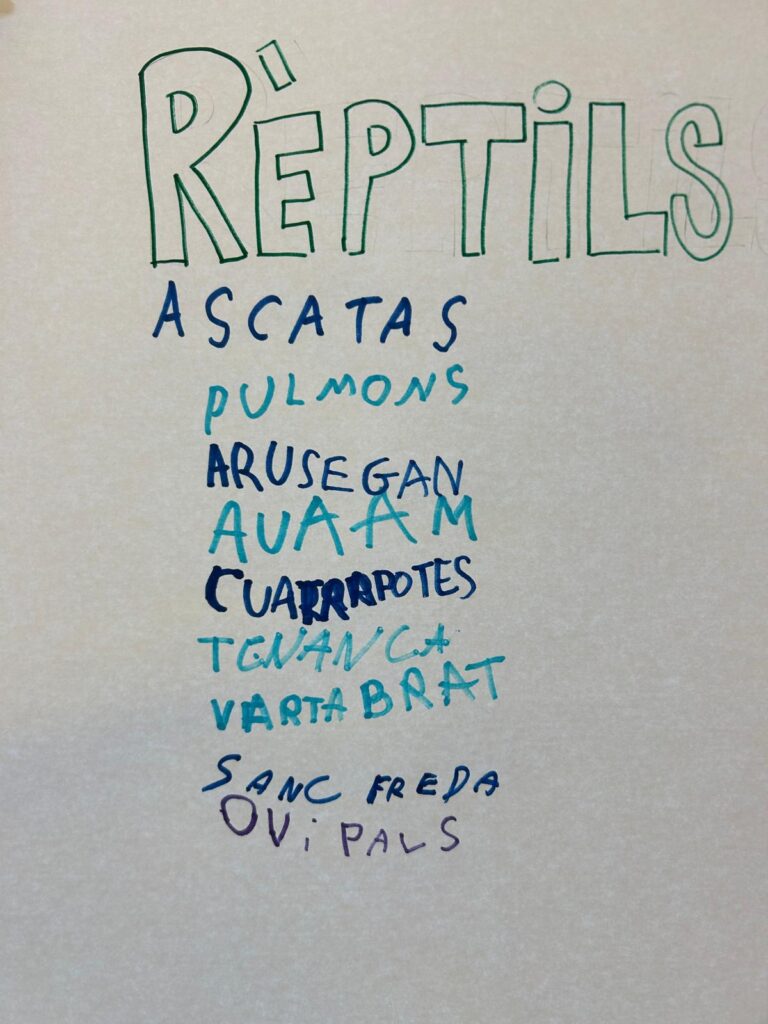 RÈPTiLS
ASCATAS
PULMONS
ARUSEGAN
AUAAM
CUATRRPOTES
TENANCA
VARTABRAT
SANC FREDA
OViPALS